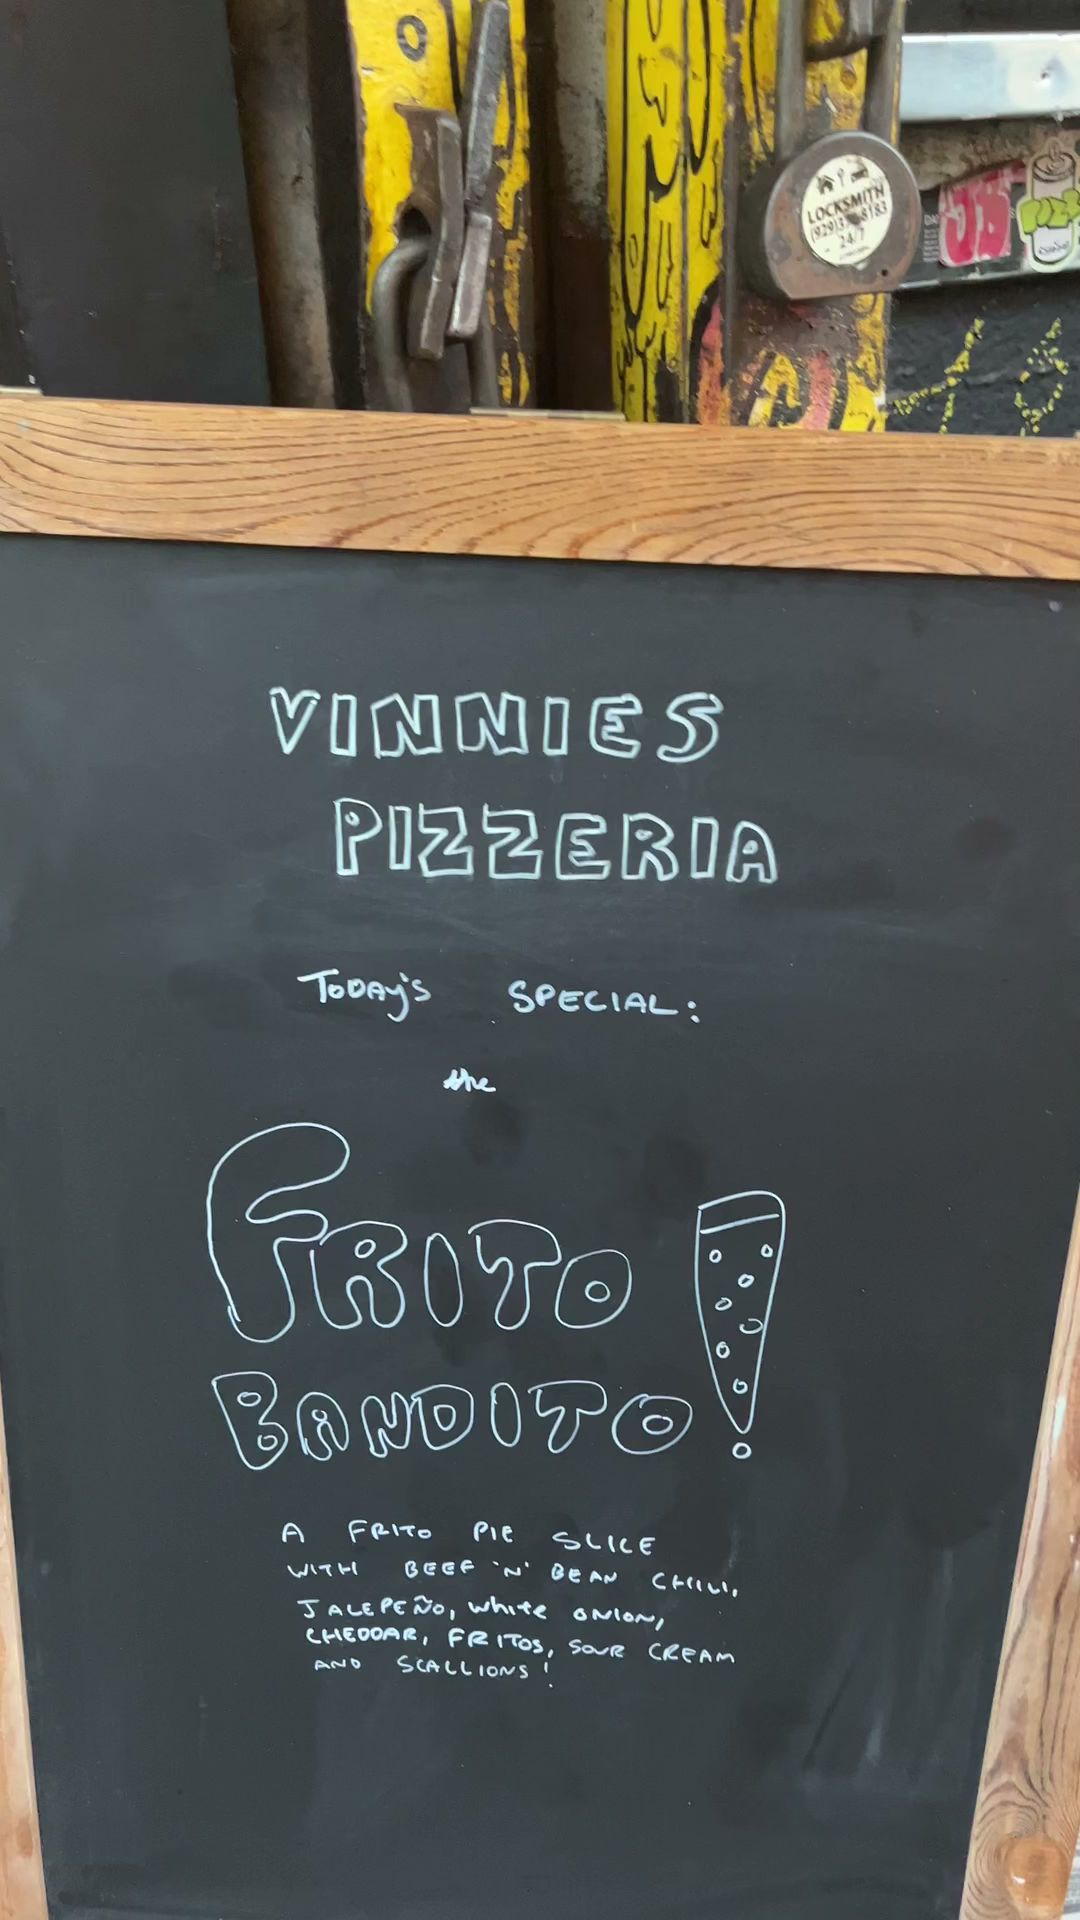 LOCKSMITH
24/7
VINNIES
PIZZERIA
TODAY'S SPECIAL:
the
FRITO
BANDITO!
A FRITO PIE SLICE
WITH BEEF 'N' BEAN CHILI,
JALEPEÑO, white ONION,
CHEDDAR, FRITOS, SOUR CREAM
AND SCALLIONS!